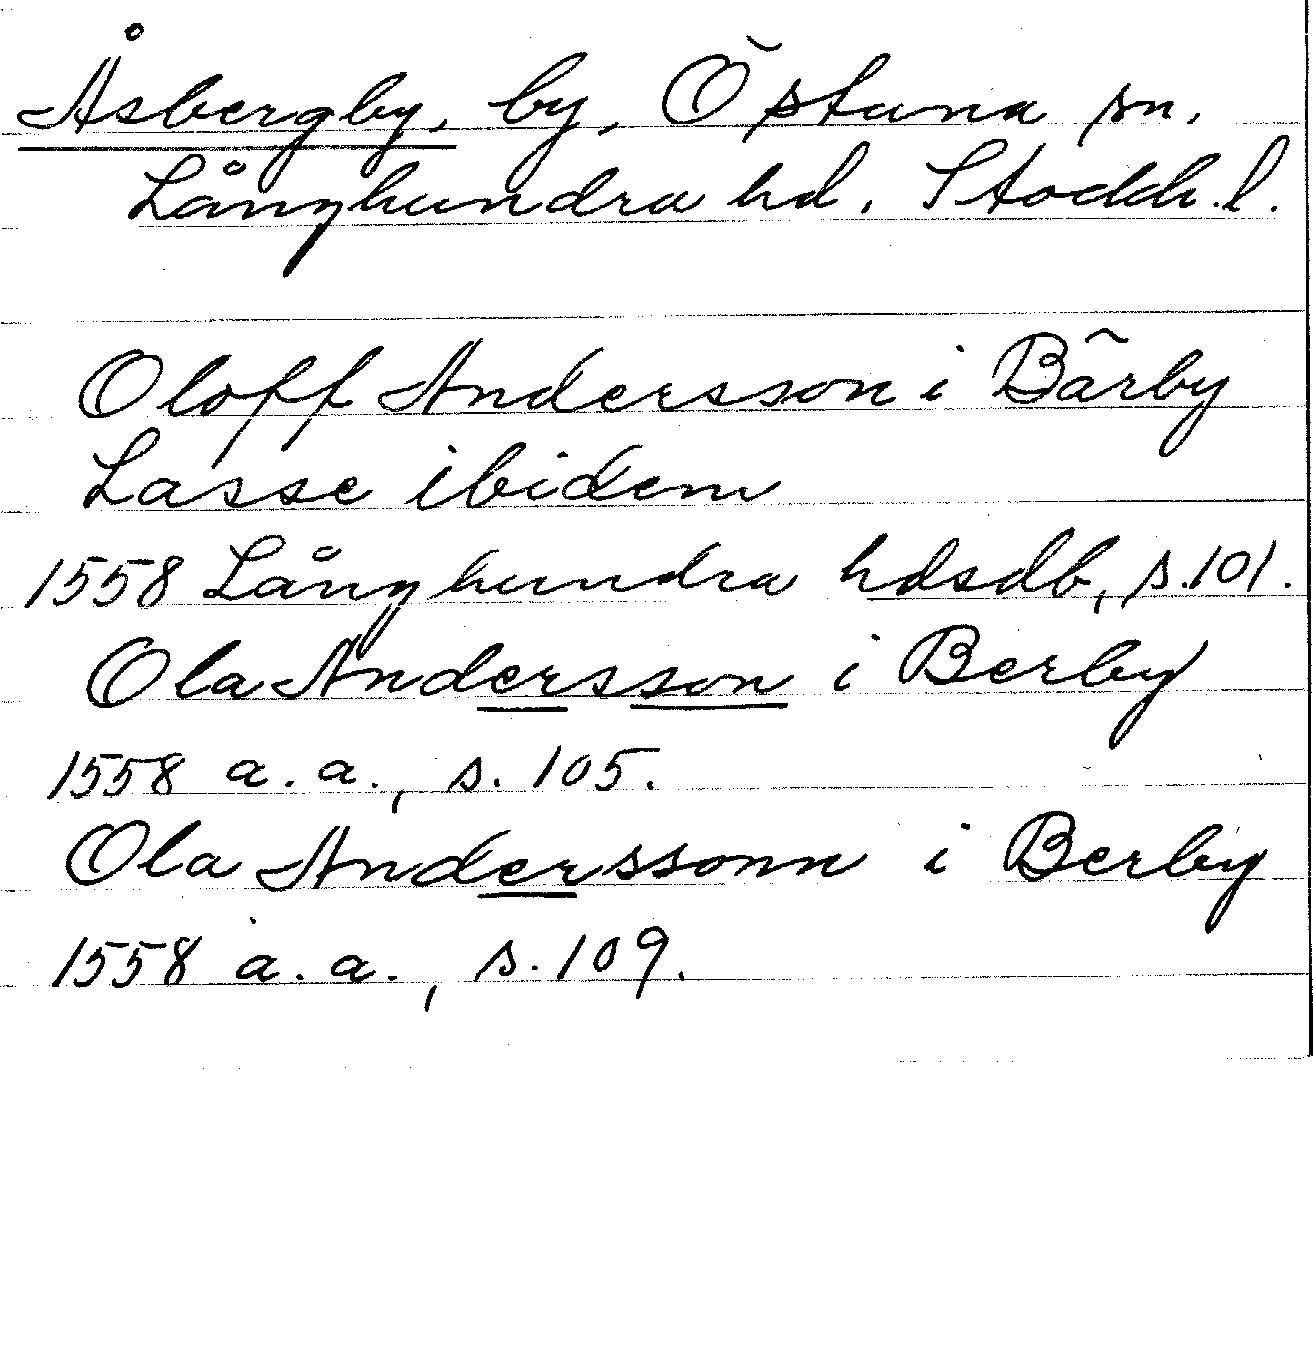 Åsbergby, by, Östuna sn.
Långhundra hd. Stockh. l.
Oloff Andersson i Bärby
Lasse ibidem
1558 Långhundra hdsdb, s. 101.
Ola Andersson i Berby
1558 a.a., s. 105.
Ola Anderssonn i Berby
1558 a.a., s. 109.